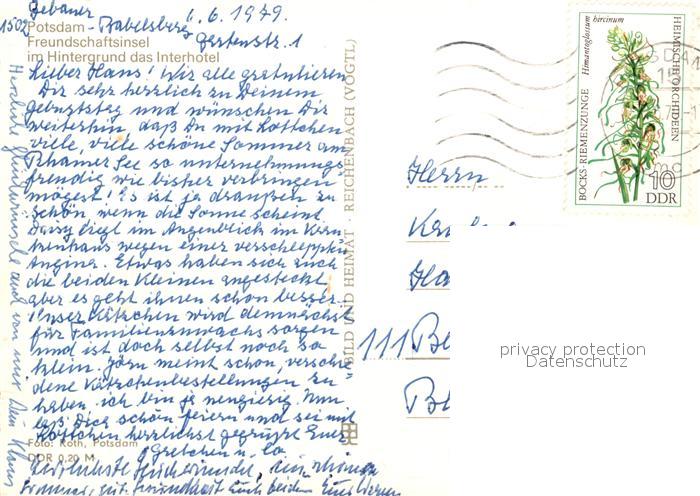 Gebauer
6.6.1979.
1502
Potsdam - Babelsberg
Gartenstr. 1
Freundschaftsinsel
im Hintergrund das Interhotel
Lieber Hans! Wir alle gratulieren
Dir sehr herzlich zu Deinem
Geburtstag und wünschen Dir
weiterhin, daß Du mit Lottchen
viele, viele schöne Sommer am
See so unternehmungs
freudig wie bisher verbringen
mögest! Es ist ja draußen zu
schön wenn die Sonne scheint.
liegt im Augenblick im Kran
kenhaus wegen einer verschleppten
Angina. Etwas haben sich auch
die beiden Kleinen angesteckt,
aber es geht ihnen schon besser.
Unser Kätzchen wird demnächst
für Familienzuwachs sorgen
und ist doch selbst noch so
klein. Jörn meint schon, verschie
dene Kätzchenbestellungen zu
haben. ich bin ja neugierig. Nun
laß Dich schön feiern und sei mit
Lottchen herzlichst gegrüßt Eure
Gretchen u. Co
Foto: Roth, Potsdam
DDR 0,20 M
Herzliche Glückwünsche auch von mir Dein Klaus
BILD UND HEIMAT REICHENBACH (VOGTL)
Herrn
111 Be
privacy protection
Datenschutz
BOCKS-RIEMENZUNGE
Himantoglossum hircinum
HEIMISCHE ORCHIDEEN
10
DDR